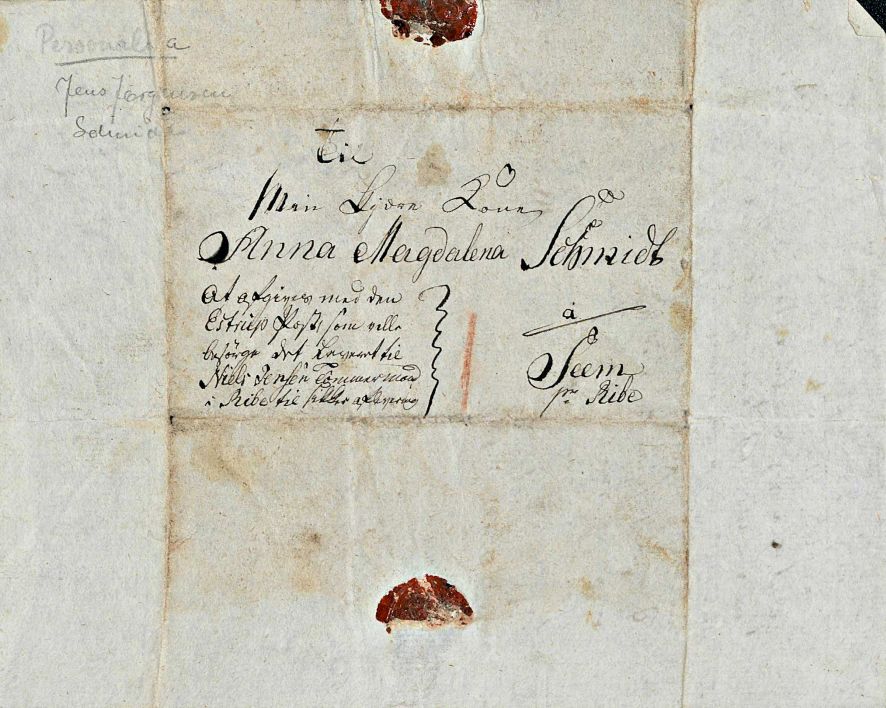 Personalia
Jens Jørgensen
Schmidt
Til
Min Kjære Kone
Anna Magdalena Schmidt
At afgives med den
Estrups Post, som ville
besörge det Leveret til
Niels Jensen Tømmermand
i Ribe til sikker aflevering
à
Seem
pr Ribe